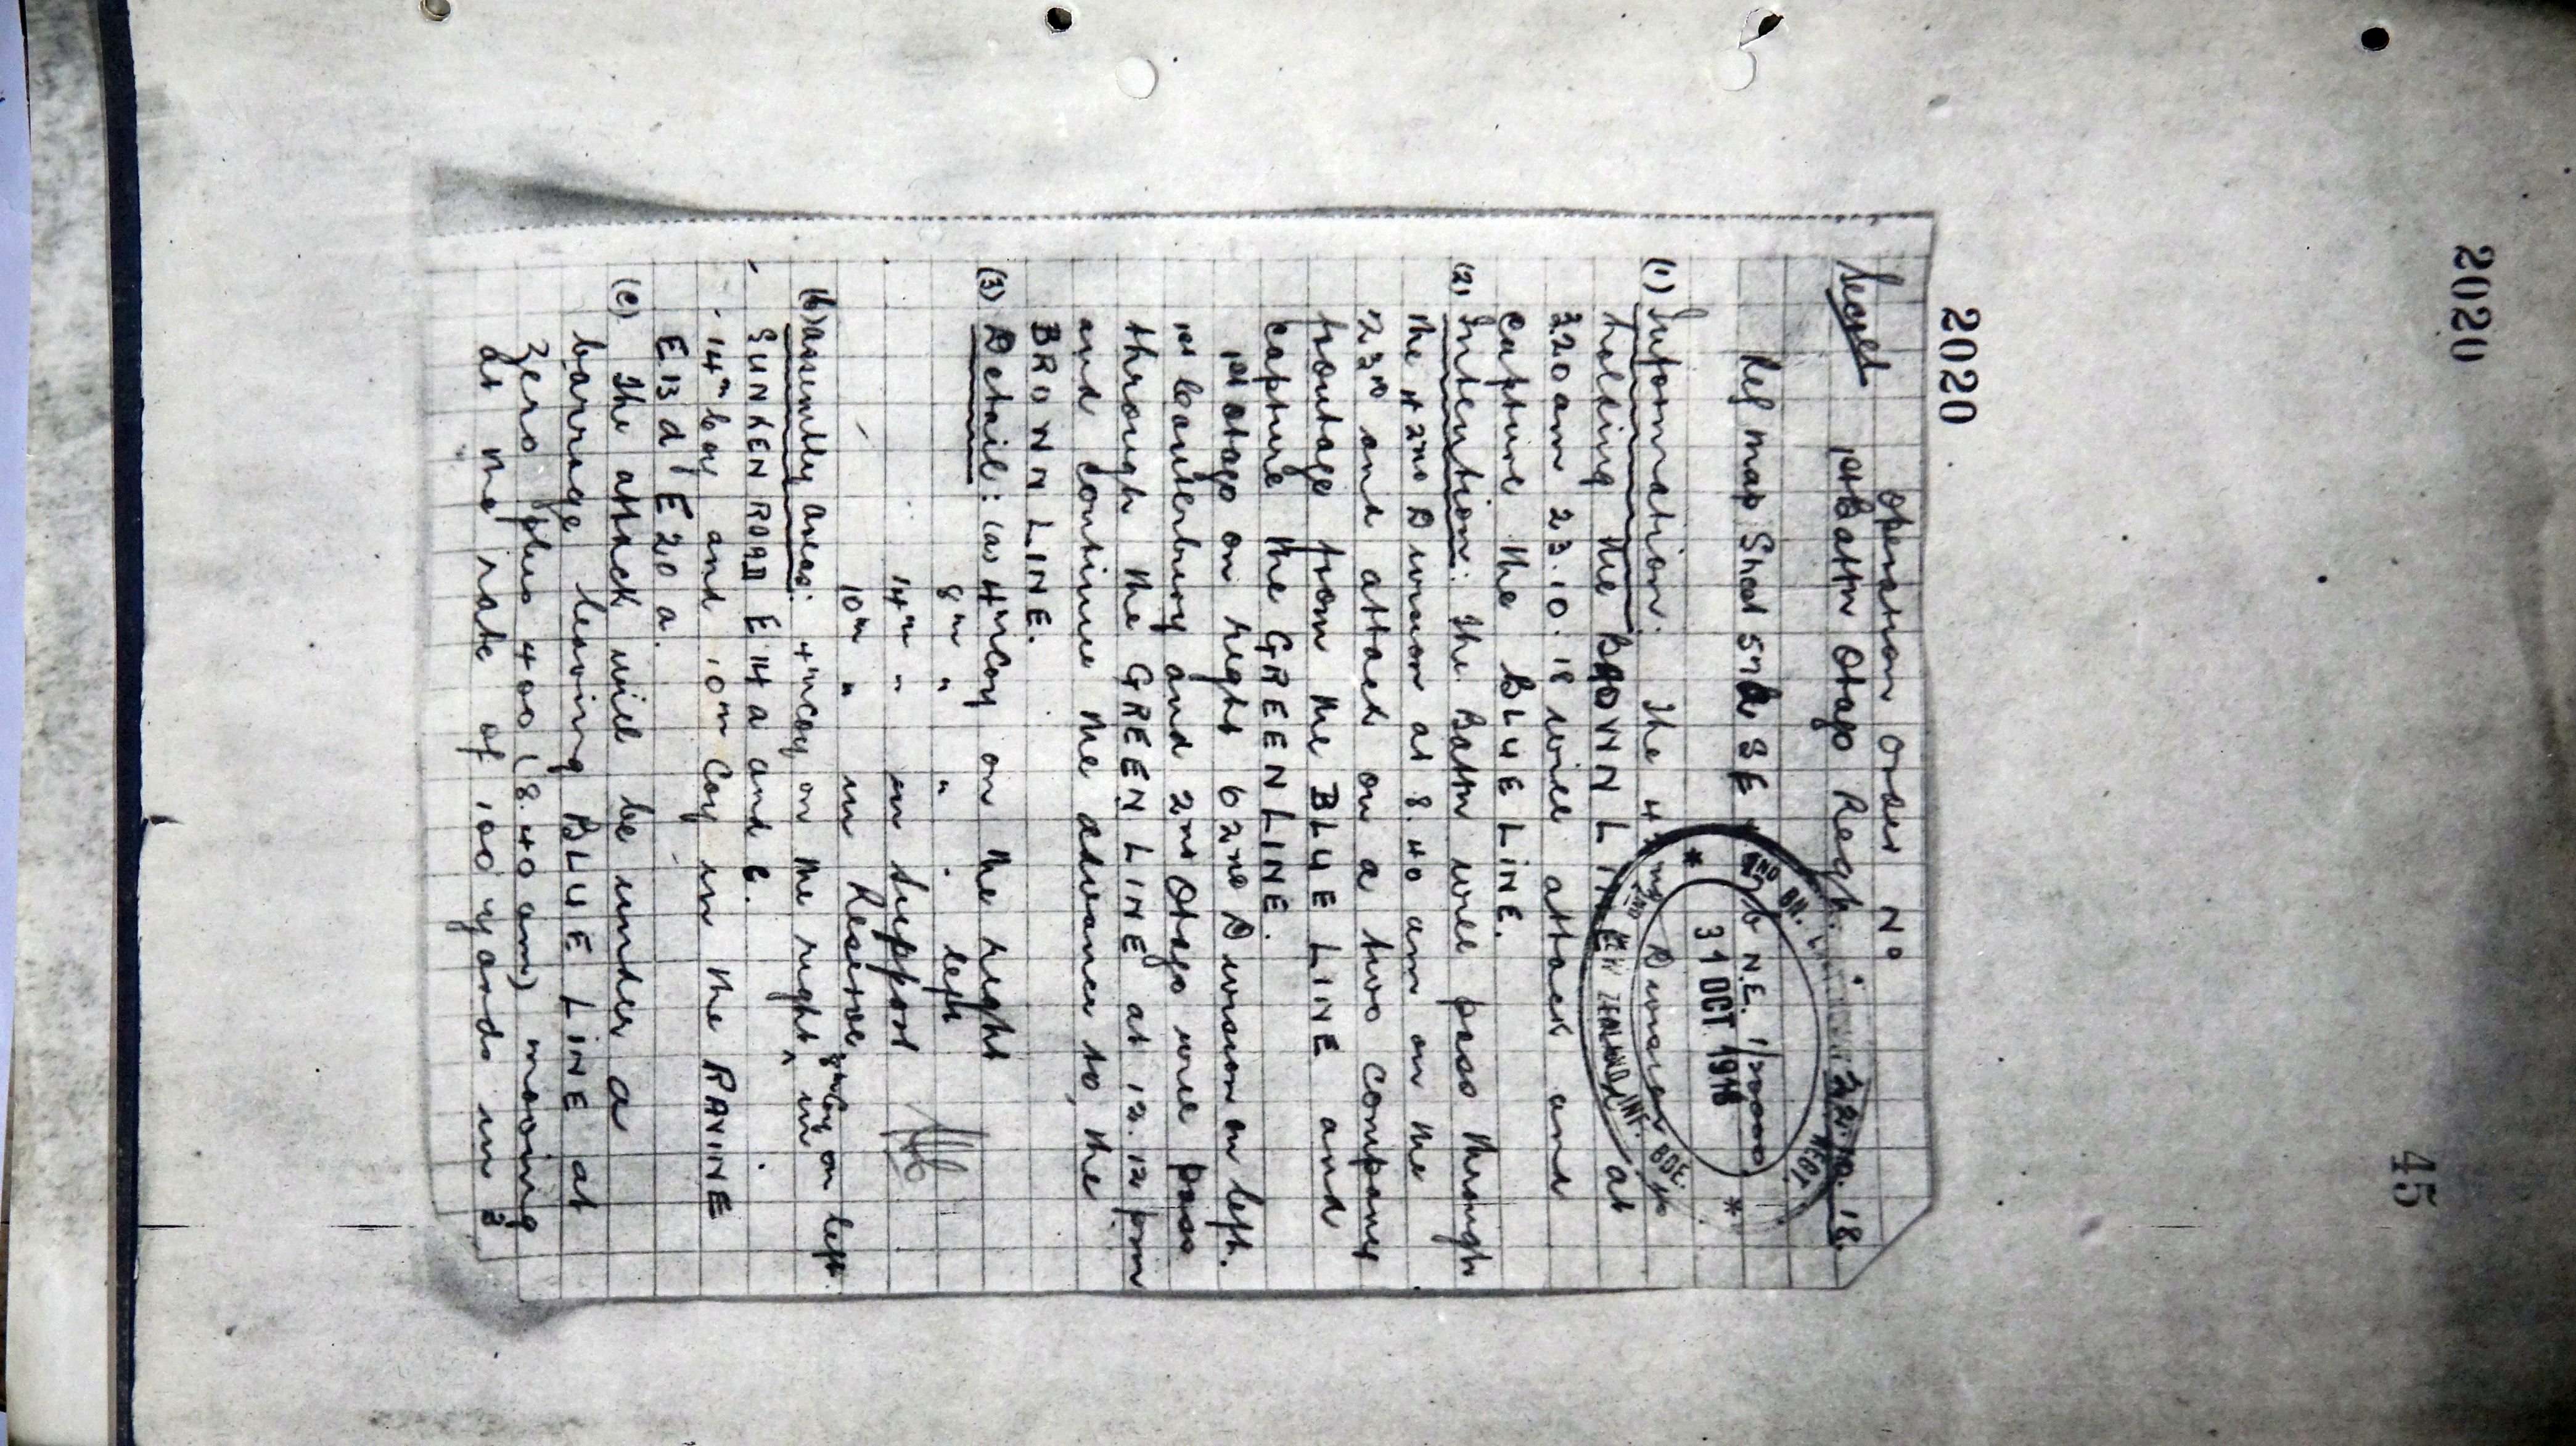 2020
45
2020
Operation Order No
Secret 1st Battn Otago Regt. 22.10.18.
Ref map Sheet 57B SE 57b N.E. 1/20000
2ND BN. REGT.
31 OCT 1918
2ND NEW ZEALAND INF. BDE.
(1) Information. The 42nd Division is
holding the BROWN LINE at
3.20 am 23.10.18 will attack and
capture the BLUE LINE.
(2) Intention: The Battn will pass through
the 42nd Division at 8.40 am on the
23rd and attack on a two company
frontage from the BLUE LINE and
capture the GREEN LINE.
1st Otago on right 62nd Division on left.
1st Canterbury and 2nd Otago will pass
through the GREEN LINE at 12.12 pm
and continue the advance to, the
BROWN LINE.
(3) Detail: (a) 4th Coy on the right
8th " " left
14th " in Support
10th " in Reserve
8th Coy on left
(b) Assembly areas: 4th Coy on the right ^ in
SUNKEN ROAD E14 a and c.
14th Coy and 10th Coy in the RAVINE
E13 d E20 a.
(c) The attack will be under a
barrage leaving BLUE LINE at
Zero plus 400 (8.40 am) moving
at the rate of 100 yards in 3